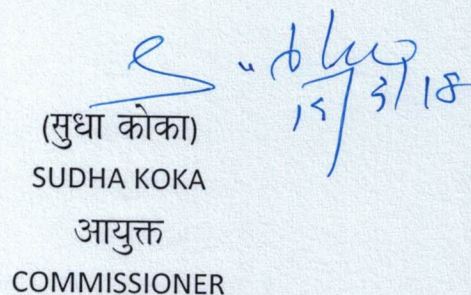 (सुधा कोका)
SUDHA KOKA
आयुक्त
COMMISSIONER